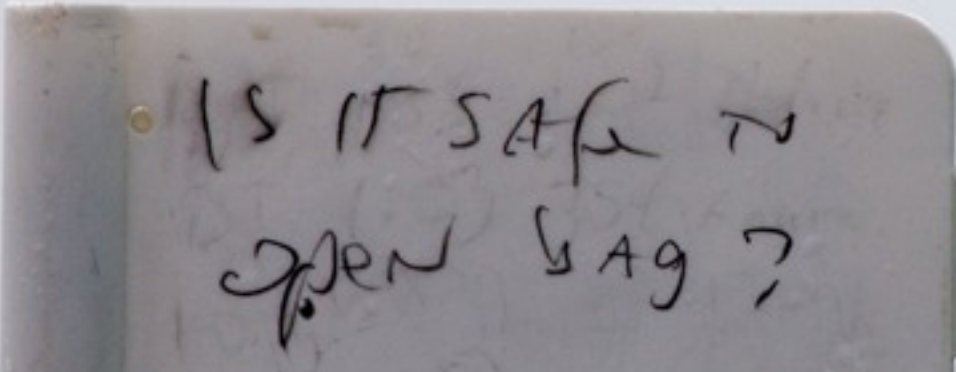 IS IT SAFe TO
OPeN bAg ?